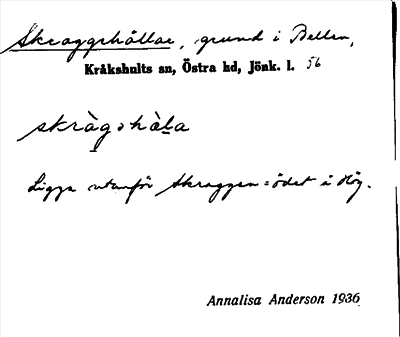 Skraggehällar, grund i Bellen,
Kråkshults sn, Östra hd, Jönk. l. 56
skràgshàla
Ligga utanför Skraggen=ödet i Hög.
Annalisa Anderson 1936